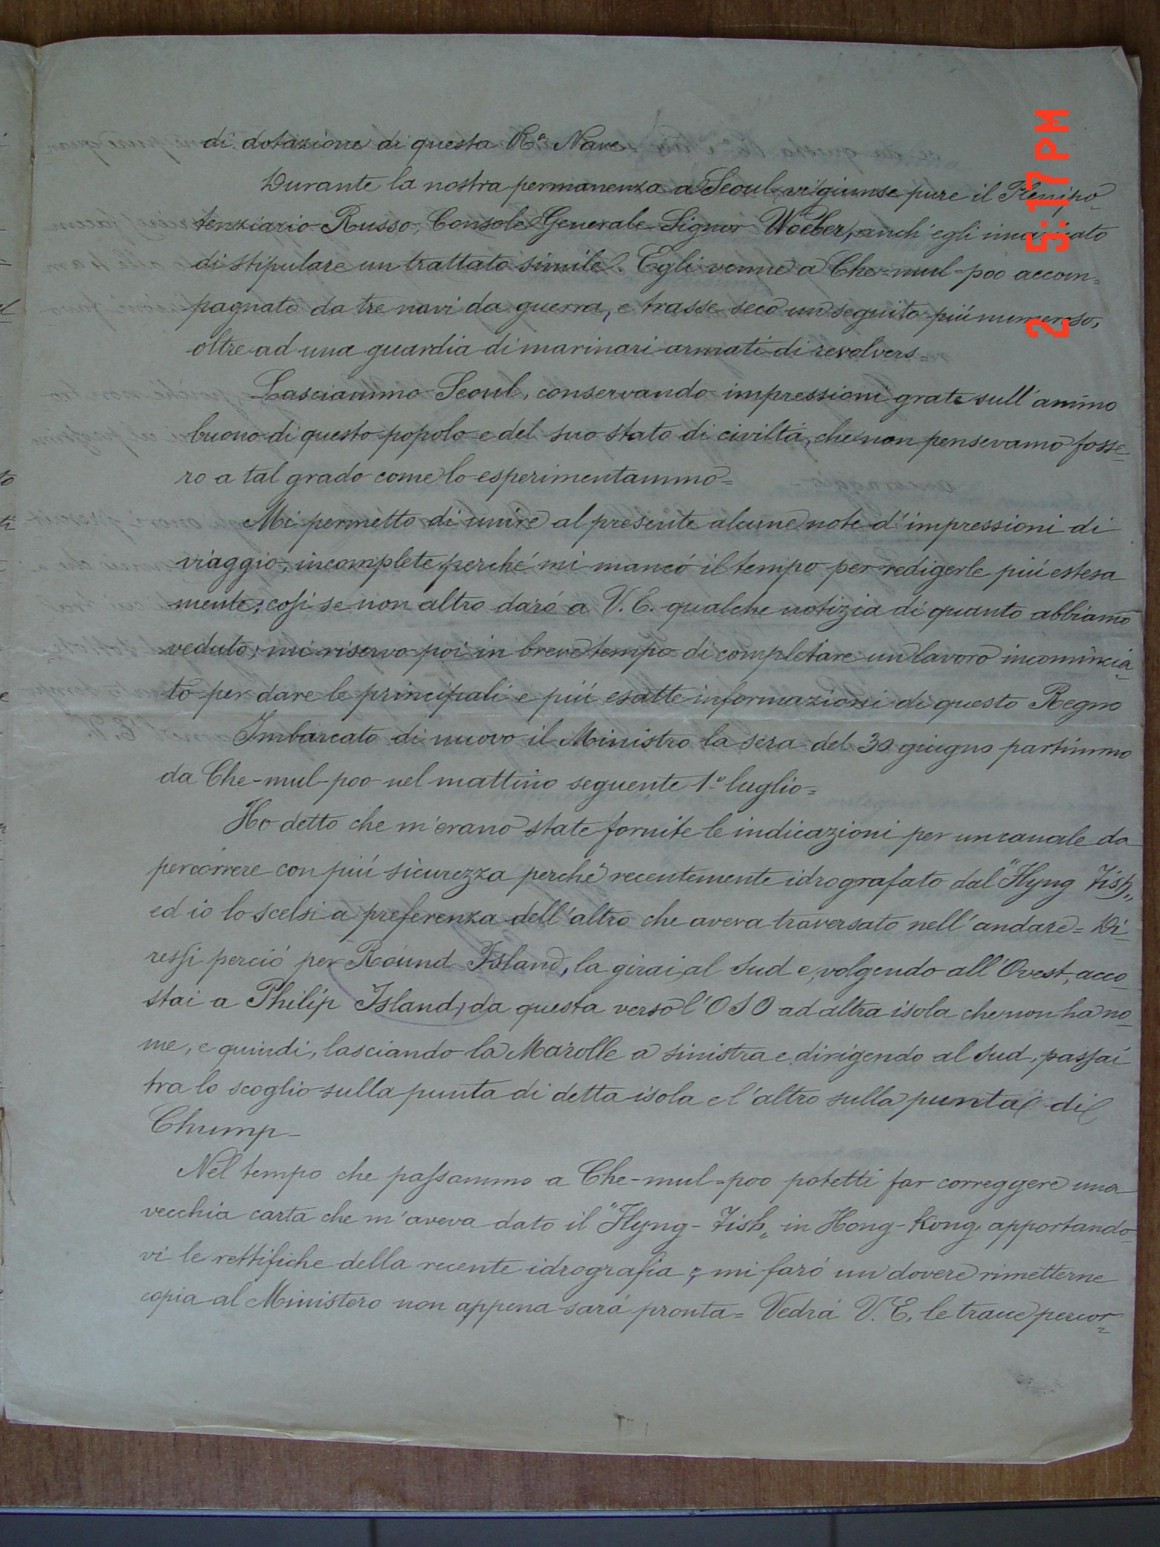 di dotazione di questa R.a Nave
Durante la nostra permanenza a Seoul vi giunse pure il Plenipo-
tenziario Russo, Console Generale Signor Waeber, anch'egli incaricato
di stipulare un trattato simile. Egli venne a Che-mul-poo accom=
pagnato da tre navi da guerra, e trasse seco un seguito piú numeroso,
oltre ad una guardia di marinari armati di revolvers=
Lasciammo Seoul, conservando impressioni grate sull'animo
buono di questo popolo e del suo stato di civiltá, che non pensevamo fosse=
ro a tal grado come lo esperimentammo=
Mi permetto di unire al presente alcune note d'impressioni di
viaggio, incomplete perché mi mancó il tempo per redigerle piú estesa
mente; cosí se non altro daró a V. E. qualche notizia di quanto abbiamo
veduto; mi riservo poi in breve tempo di completare un lavoro incomincia=
to per dare le principali e piú esatte informazioni di questo Regno
Imbarcato di nuovo il Ministro la sera del 30 giugno partimmo
da Che-mul-poo nel mattino seguente 1.° luglio=
Ho detto che m'erano state fornite le indicazioni per un canale da
percorrere con piú sicurezza perché recentemente idrografato dal "Flyng Fish"
ed io lo scelsi a preferenza dell'altro che aveva traversato nell'andare= Di-
ressi perció per Round Island, la girai al Sud e, volgendo all'Ovest, acco
stai a Philip Island, da questa verso l'OSO ad altra isola che non ha no=
me, e quindi, lasciando la Marolle a sinistra e dirigendo al Sud, passai
tra lo scoglio sulla punta di detta isola e l'altro sulla punta di
Chump-
Nel tempo che passammo a Che-mul=poo potetti far correggere una
vecchia carta che m'aveva dato il "Flyng-Fish" in Hong-Kong, apportando-
vi le rettifiche della recente idrografia; mi faró un dovere rimetterne
copia al Ministero non appena sará pronta= Vedrá V. E. le tracce percor=
2 5:17PM